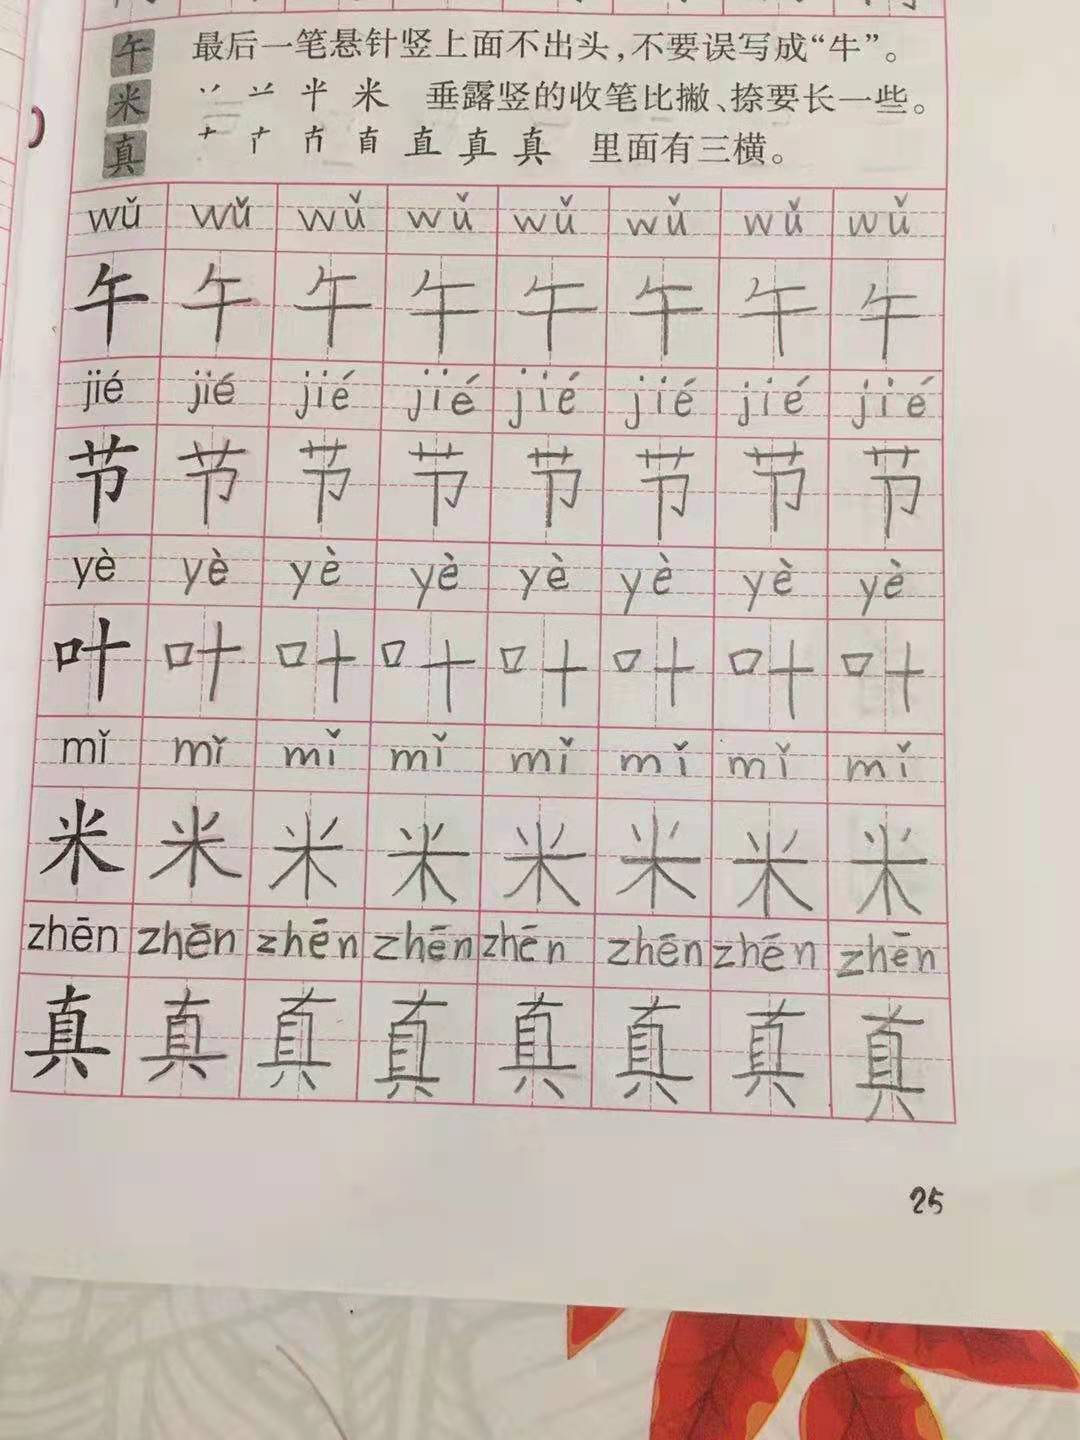 午 最后一笔悬针竖上面不出头，不要误写成“牛”。
米 垂露竖的收笔比撇、捺要长一些。
真 直 真 真 里面有三横。
wǔ wǔ wǔ wǔ wǔ wǔ wǔ wǔ
午 午 午 午 午 午 午 午
jié jié jié jié jié jié jié jié
节 节 节 节 节 节 节 节
yè yè yè yè yè yè yè yè
叶 叶 叶 叶 叶 叶 叶 叶
mǐ mǐ mǐ mǐ mǐ mǐ mǐ mǐ
米 米 米 米 米 米 米 米
zhēn zhēn zhēn zhēn zhēn zhēn zhēn zhēn
真 真 真 真 真 真 真 真
25